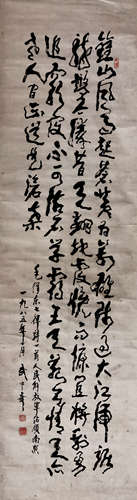 鍾山風雨起蒼黄百万雄師過大江虎踞
龍盤今勝昔天翻地覆慨而慷宜將剩勇
追窮寇不可沽名学霸王天若有情天亦
老人间正道是滄桑
毛泽东七律詩一首人民解放軍占領南京
一九八五年 月 武中奇